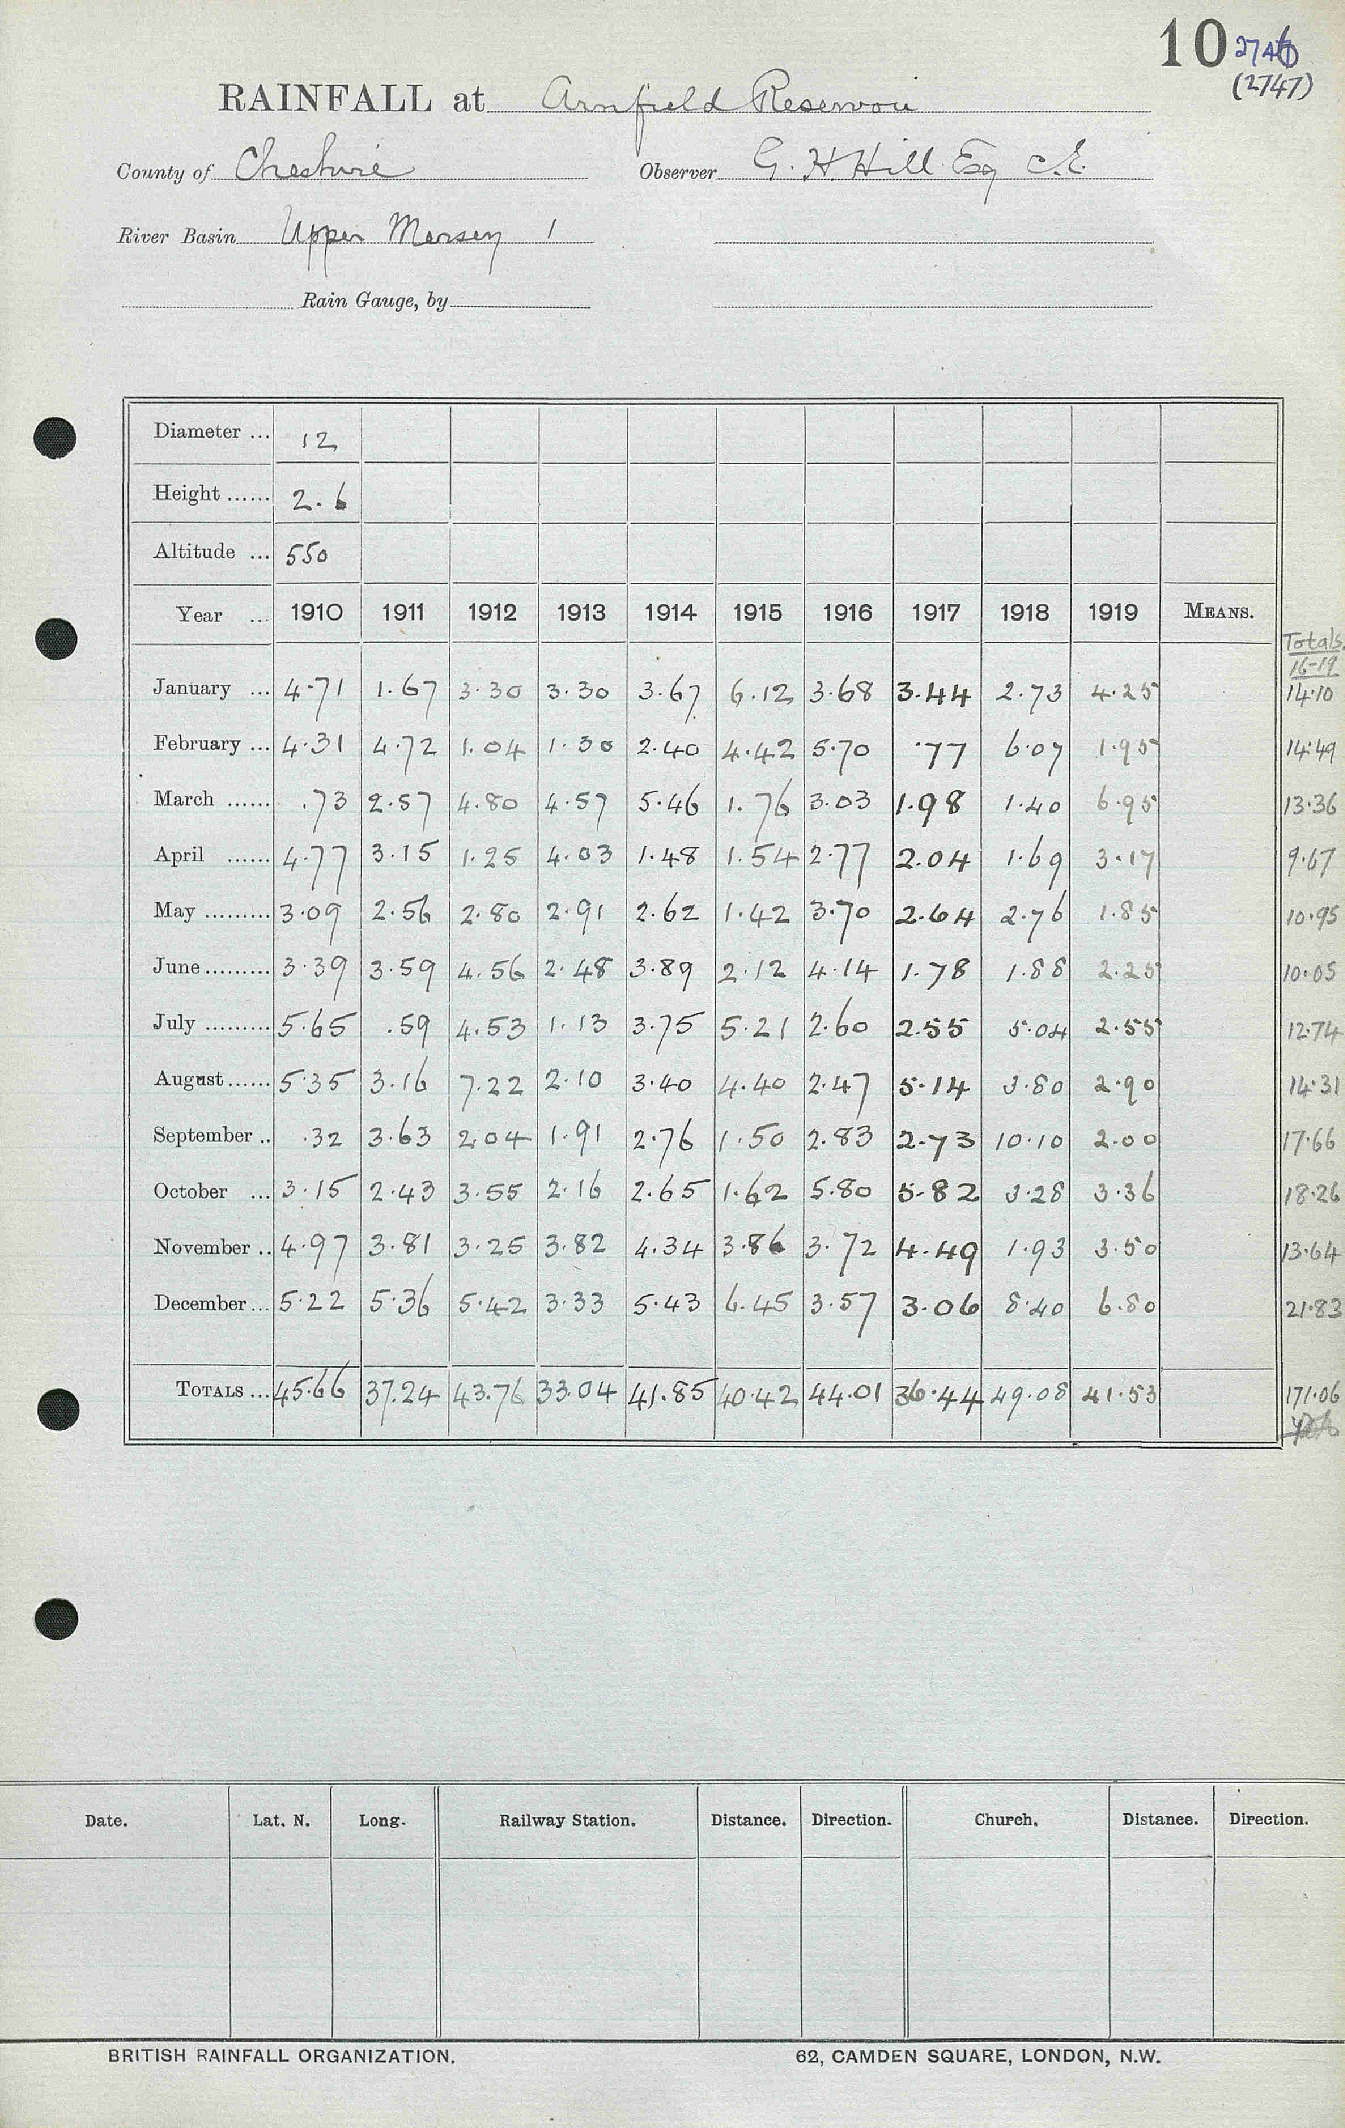 10 2746
(2747)
RAINFALL at Arnfield Reservoir
County of Cheshire Observer G. H. Hill Esq C.E.
River Basin Upper Mersey 1
Rain Gauge, by
Diameter ... 12
Height ...... 2.6
Altitude ... 550
Year ... 1910 1911 1912 1913 1914 1915 1916 1917 1918 1919 MEANS.
Totals
16-19
January ... 4.71 1.67 3.30 3.30 3.67 6.12 3.68 3.44 2.73 4.25 14.10
February ... 4.31 4.72 1.04 1.30 2.40 4.42 5.70 .77 6.07 1.95 14.49
March ...... .73 2.57 4.80 4.57 5.46 1.76 3.03 1.98 1.40 6.95 13.36
April ...... 4.77 3.15 1.25 4.03 1.48 1.54 2.77 2.04 1.69 3.17 9.67
May ......... 3.09 2.56 2.80 2.91 2.62 1.42 3.70 2.64 2.76 1.85 10.95
June ......... 3.39 3.59 4.56 2.48 3.89 2.12 4.14 1.78 1.88 2.25 10.05
July ......... 5.65 .59 4.53 1.13 3.75 5.21 2.60 2.55 5.04 2.55 12.74
August ...... 5.35 3.16 7.22 2.10 3.40 4.40 2.47 5.14 3.80 2.90 14.31
September .. .32 3.63 2.04 1.91 2.76 1.50 2.83 2.73 10.10 2.00 17.66
October ... 3.15 2.43 3.55 2.16 2.65 1.62 5.80 5.82 3.28 3.36 18.26
November .. 4.97 3.81 3.25 3.82 4.34 3.86 3.72 4.49 1.93 3.50 13.64
December ... 5.22 5.36 5.42 3.33 5.43 6.45 3.57 3.06 8.40 6.80 21.83
TOTALS ... 45.66 37.24 43.76 33.04 41.85 40.42 44.01 36.44 49.08 41.53 171.06
Date. Lat. N. Long. Railway Station. Distance. Direction. Church. Distance. Direction.
BRITISH RAINFALL ORGANIZATION. 62, CAMDEN SQUARE, LONDON, N.W.